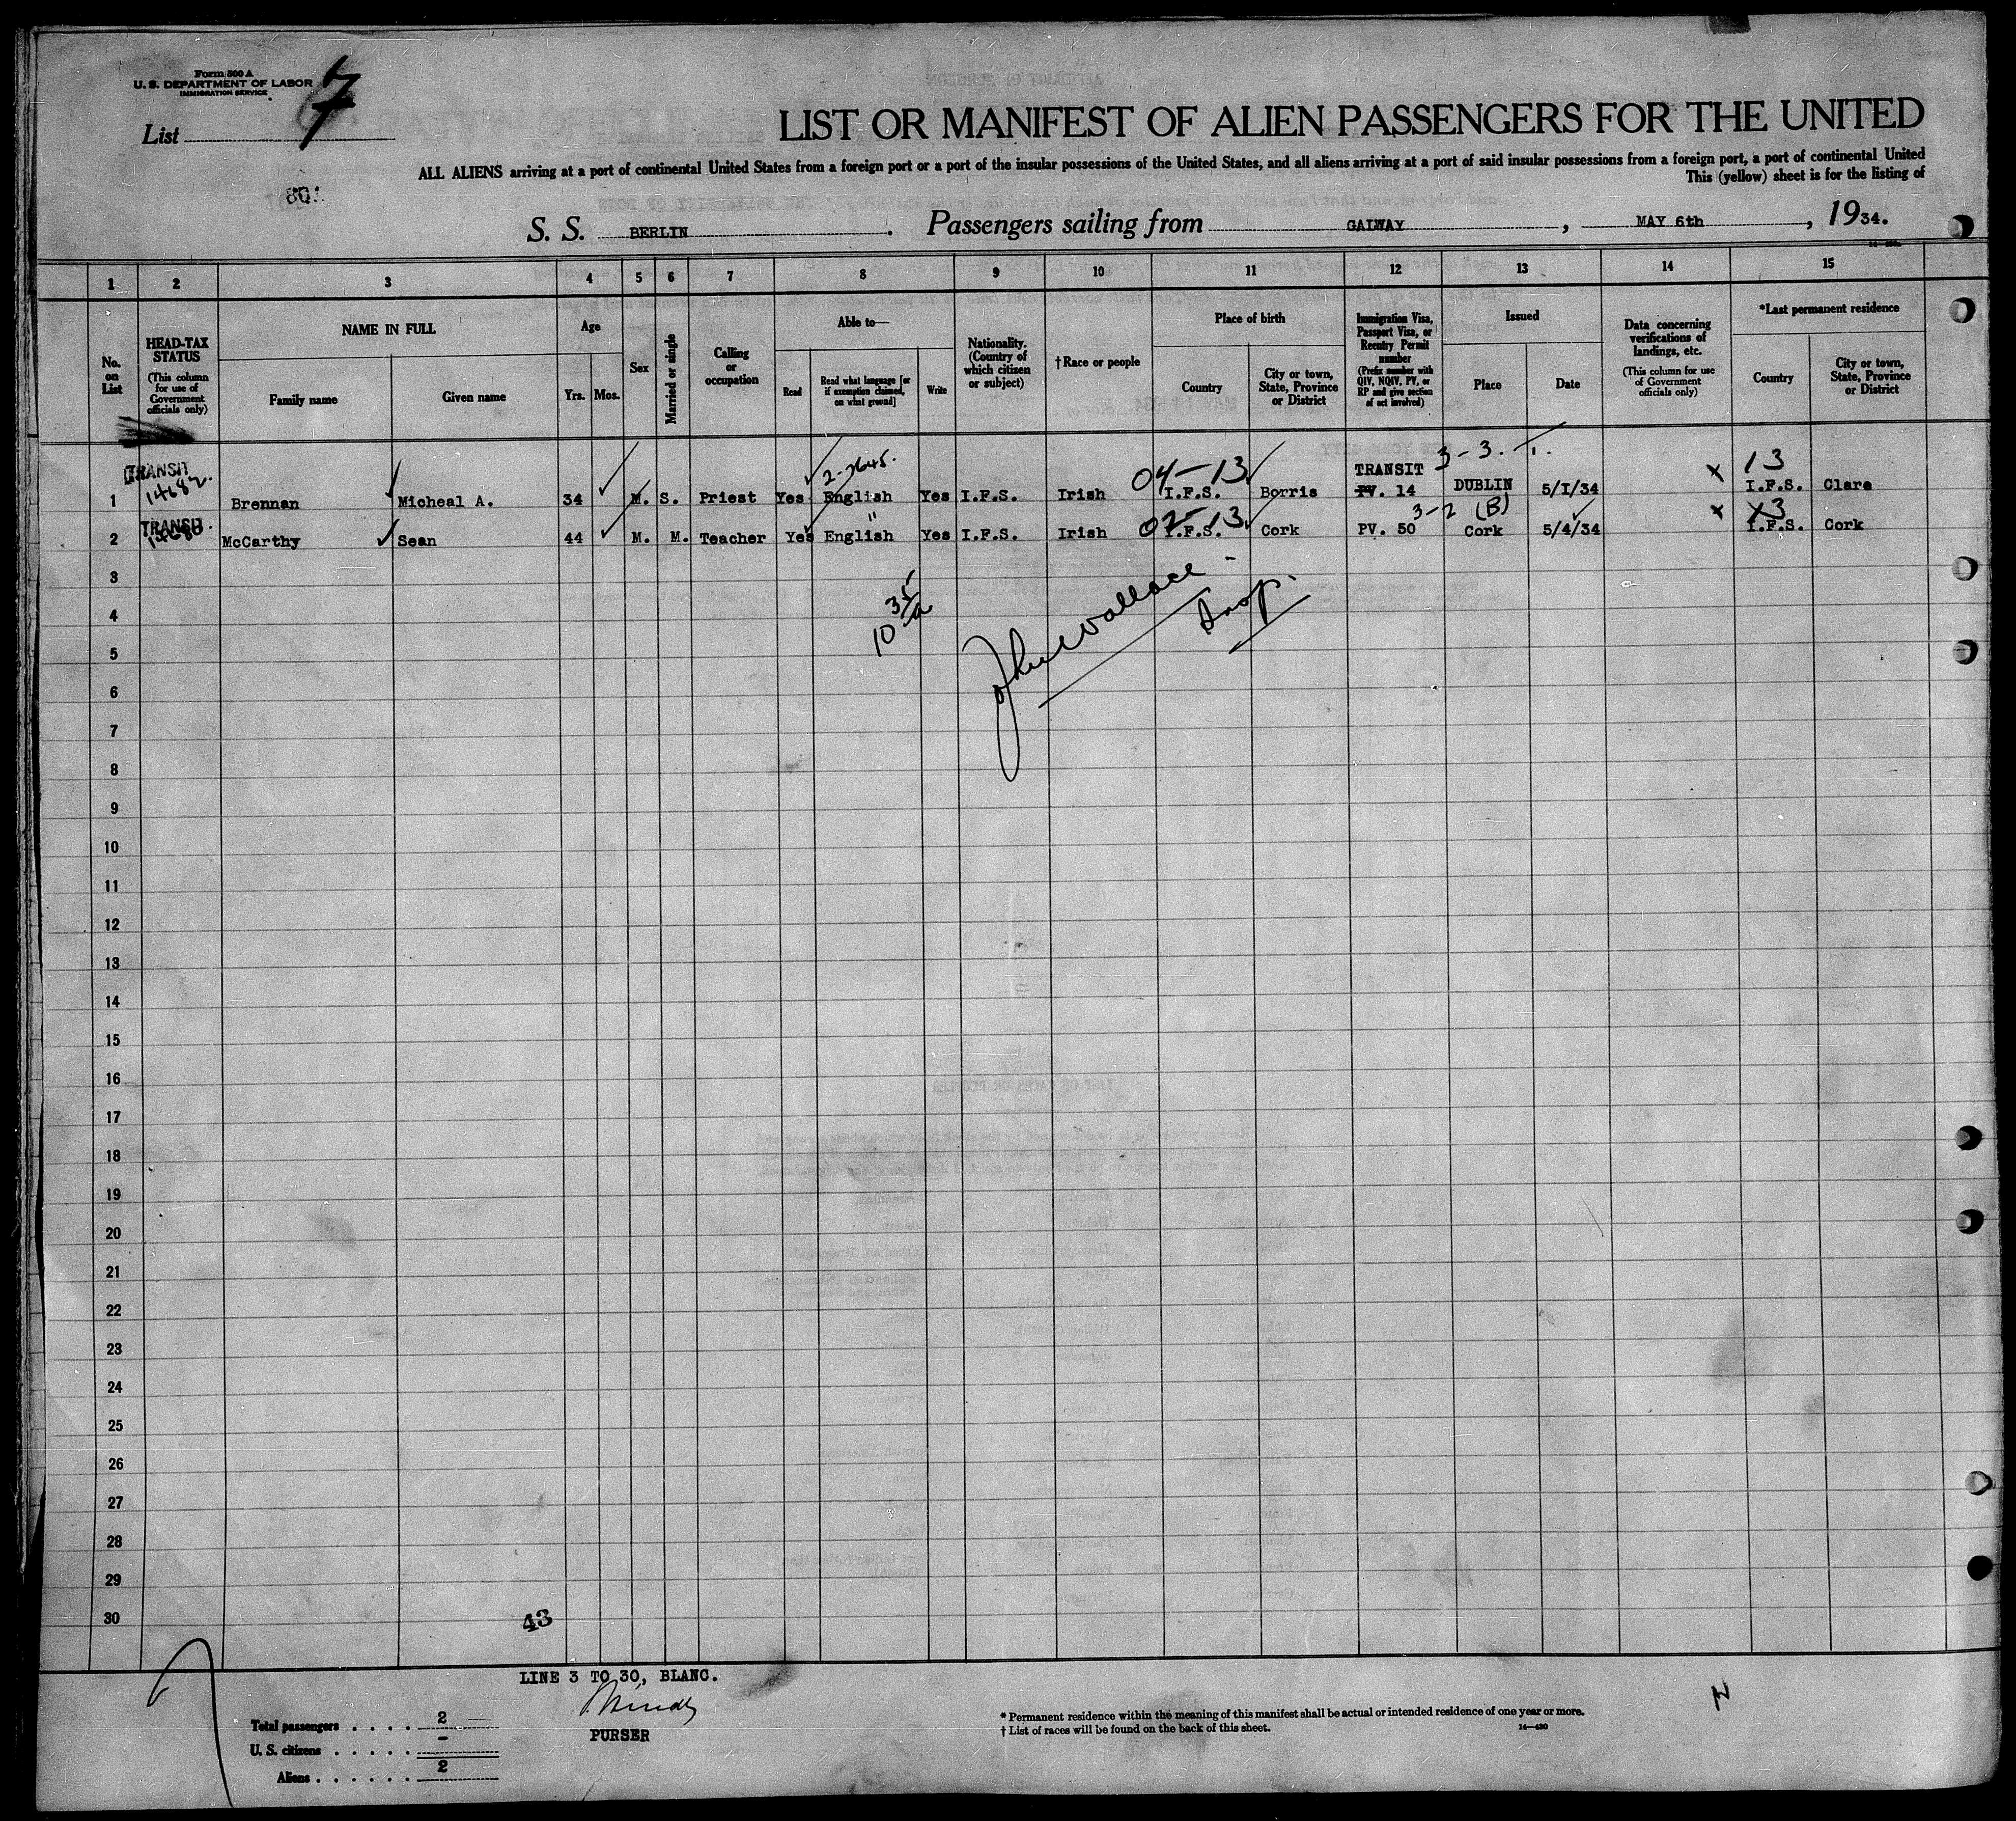 Form 500 A
U. S. DEPARTMENT OF LABOR
IMMIGRATION SERVICE
List 7
LIST OR MANIFEST OF ALIEN PASSENGERS FOR THE UNITED
ALL ALIENS arriving at a port of continental United States from a foreign port or a port of the insular possessions of the United States, and all aliens arriving at a port of said insular possessions from a foreign port, a port of continental United
This (yellow) sheet is for the listing of
S. S. BERLIN. Passengers sailing from GALWAY, MAY 6th, 1934.
1 2 3 4 5 6 7 8 9 10 11 12 13 14 15
No. on List
HEAD-TAX STATUS (This column for use of Government officials only)
NAME IN FULL
Family name Given name
Age
Yrs. Mos.
Sex
Married or single
Calling or occupation
Able to—
Read Read what language [or if exemption claimed, on what ground] Write
Nationality. (Country of which citizen or subject)
†Race or people
Place of birth
Country City or town, State, Province or District
Immigration Visa, Passport Visa, or Reentry Permit number (Prefix number with QIV, NQIV, PV, or RP and give section of act involved)
Issued
Place Date
Data concerning verifications of landings, etc. (This column for use of Government officials only)
*Last permanent residence
Country City or town, State, Province or District
TRANSIT 2-2645. 04-13 TRANSIT 3-3. T. x 13
14682.
1 Brennan Micheal A. 34 M. S. Priest Yes English Yes I.F.S. Irish I.F.S. Borris PV. 14 DUBLIN 5/1/34 I.F.S. Clare
TRANSIT " 02-13 3-2 (B) x X3
2 McCarthy Sean 44 M. M. Teacher Yes English Yes I.F.S. Irish I.F.S. Cork PV. 50 Cork 5/4/34 I.F.S. Cork
3
10 35/a
Wallace
Insp.
4
5
6
7
8
9
10
11
12
13
14
15
16
17
18
19
20
21
22
23
24
25
26
27
28
29
30
43
LINE 3 TO 30, BLANC.
PURSER
Total passengers . . . . 2
U. S. citizens . . . . . -
Aliens . . . . . . 2
* Permanent residence within the meaning of this manifest shall be actual or intended residence of one year or more.
† List of races will be found on the back of this sheet.
14—430
N